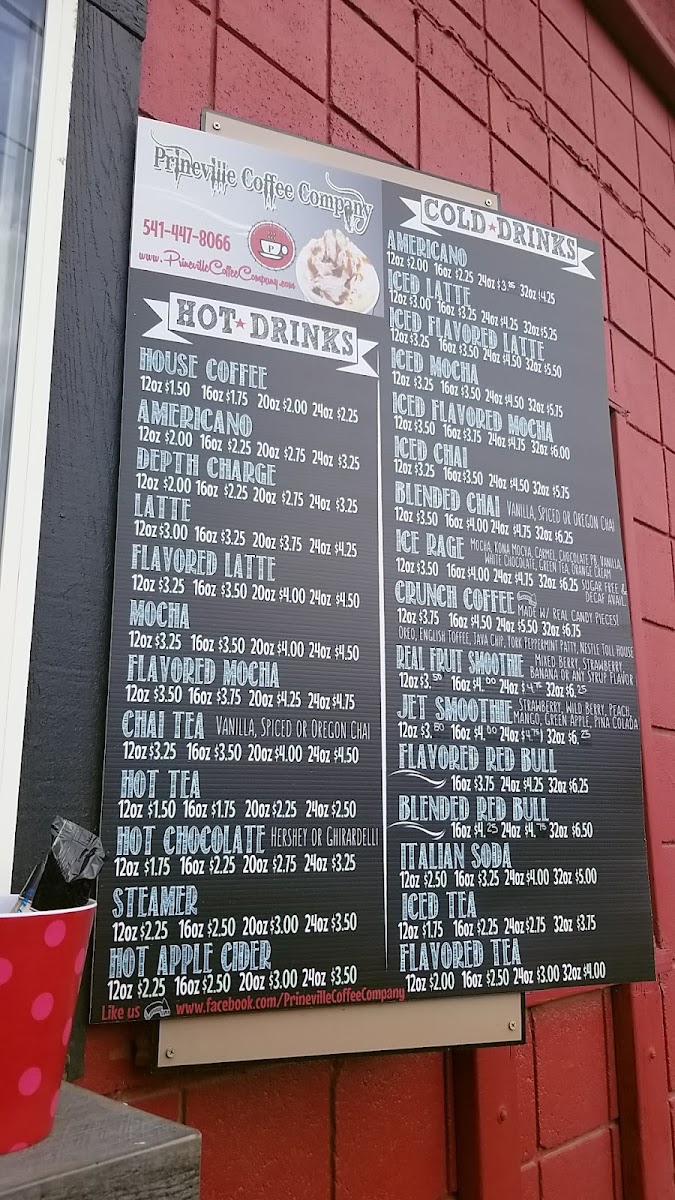 Prineville Coffee Company
541-447-8066
P
www.PrinevilleCoffeeCompany.com
HOT DRINKS
HOUSE COFFEE
12oz $1.50 16oz $1.75 20oz $2.00 24oz $2.25
AMERICANO
12oz $2.00 16oz $2.25 20oz $2.75 24oz $3.25
DEPTH CHARGE
12oz $2.00 16oz $2.25 20oz $2.75 24oz $3.25
LATTE
12oz $3.00 16oz $3.25 20oz $3.75 24oz $4.25
FLAVORED LATTE
12oz $3.25 16oz $3.50 20oz $4.00 24oz $4.50
MOCHA
12oz $3.25 16oz $3.50 20oz $4.00 24oz $4.50
FLAVORED MOCHA
12oz $3.50 16oz $3.75 20oz $4.25 24oz $4.75
CHAI TEA VANILLA, SPICED OR OREGON CHAI
12oz $3.25 16oz $3.50 20oz $4.00 24oz $4.50
HOT TEA
12oz $1.50 16oz $1.75 20oz $2.25 24oz $2.50
HOT CHOCOLATE HERSHEY OR GHIRARDELLI
12oz $1.75 16oz $2.25 20oz $2.75 24oz $3.25
STEAMER
12oz $2.25 16oz $2.50 20oz $3.00 24oz $3.50
HOT APPLE CIDER
12oz $2.25 16oz $2.50 20oz $3.00 24oz $3.50
Like us www.facebook.com/PrinevilleCoffeeCompany
COLD DRINKS
AMERICANO
12oz $2.00 16oz $2.25 24oz $3.25 32oz $4.25
ICED LATTE
12oz $3.00 16oz $3.25 24oz $4.25 32oz $5.25
ICED FLAVORED LATTE
12oz $3.25 16oz $3.50 24oz $4.50 32oz $5.50
ICED MOCHA
12oz $3.25 16oz $3.50 24oz $4.50 32oz $5.75
ICED FLAVORED MOCHA
12oz $3.50 16oz $3.75 24oz $4.75 32oz $6.00
ICED CHAI
12oz $3.25 16oz $3.50 24oz $4.50 32oz $5.75
BLENDED CHAI VANILLA, SPICED OR OREGON CHAI
12oz $3.50 16oz $4.00 24oz $4.75 32oz $6.25
ICE RAGE MOCHA, KONA MOCHA, CARMEL, CHOCOLATE PB, VANILLA,
WHITE CHOCOLATE, GREEN TEA, ORANGE CREAM
12oz $3.50 16oz $4.00 24oz $4.75 32oz $6.25 SUGAR FREE &
DECAF AVAIL.
CRUNCH COFFEE MADE W/ REAL CANDY PIECES!
12oz $3.75 16oz $4.50 24oz $5.50 32oz $6.75
OREO, ENGLISH TOFFEE, JAVA CHIP, YORK PEPPERMINT PATTY, NESTLE TOLL HOUSE
REAL FRUIT SMOOTHIE MIXED BERRY, STRAWBERRY,
BANANA OR ANY SYRUP FLAVOR
12oz $3.50 16oz $4.00 24oz $4.75 32oz $6.25
JET SMOOTHIE STRAWBERRY, WILD BERRY, PEACH,
MANGO, GREEN APPLE, PINA COLADA
12oz $3.50 16oz $4.00 24oz $4.75 32oz $6.25
FLAVORED RED BULL
16oz $3.75 24oz $4.25 32oz $6.25
BLENDED RED BULL
16oz $4.25 24oz $4.75 32oz $6.50
ITALIAN SODA
12oz $2.50 16oz $3.25 24oz $4.00 32oz $5.00
ICED TEA
12oz $1.75 16oz $2.25 24oz $2.75 32oz $3.75
FLAVORED TEA
12oz $2.00 16oz $2.50 24oz $3.00 32oz $4.00